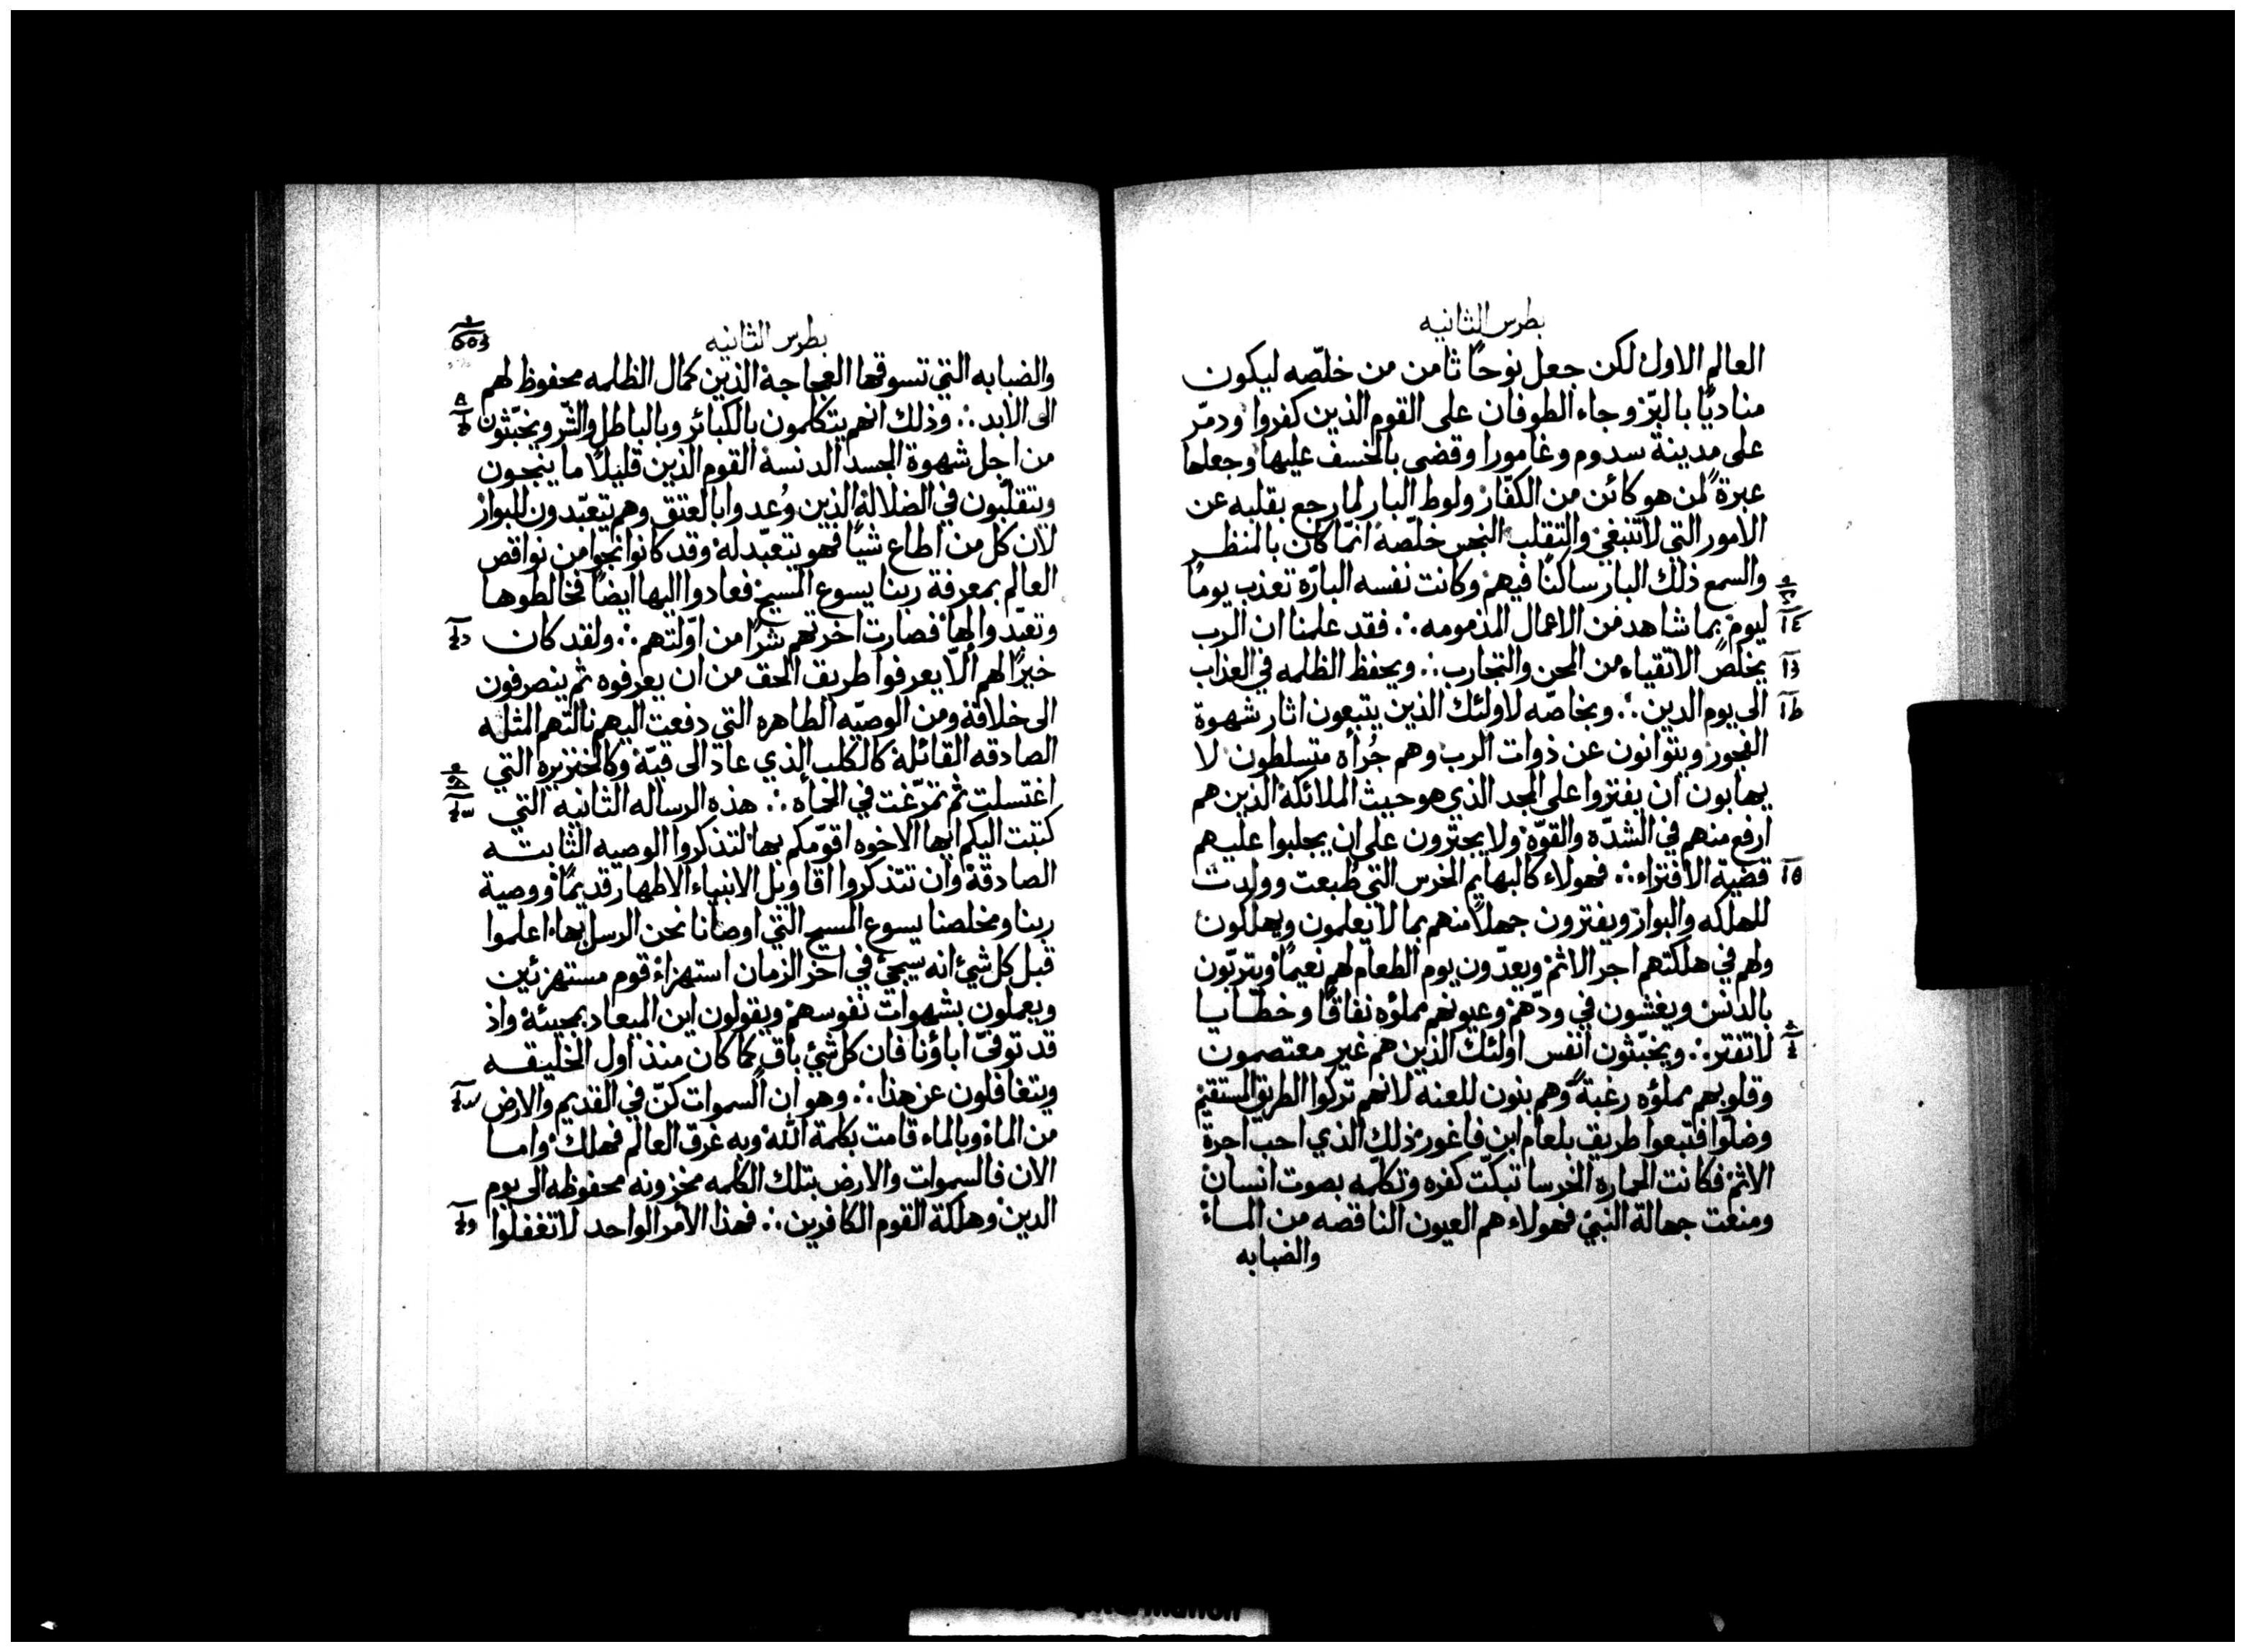 بطرس الثانيه
العالم الاول لكن جعل نوحًا ثامن من خلّصه ليكون
مناديًا بالبرّ وجاء الطوفان على القوم الذين كفروا ودمّر
على مدينة سدوم وغامورا وقضى بالخسف عليها وجعلها
عبرةً لمن هو كائن من الكفّار ولوط البار لما رجع بقلبه عن
الامور التي لاتنبغي والتقلب النجس خلّصه انّما كان بالمنظر
والسمع ذلك البار ساكنًا فيهم وكانت نفسه البارّة تعذب يومًا
ليوم بما شاهد من الاعمال المذمومه ؞ فقد علمنا ان الرب
يخلص الاتقياء من المحن والتجارب ؞ ويحفظ الظلمه في العذاب
الى يوم الدين ؞ وبخاصّه لاولئك الذين يتبعون اثار شهوة
الفجور ويتوانون عن ذوات الرب وهم جُرأه متسلطون لا
يهابون ان يفتروا على المجد الذي هو حيث الملائكة الذين هم
ارفع منهم في الشدّه والقوّة ولا يجترون على ان يجلبوا عليهم
قضية الافتراء ؞ فهولاء كالبهايم الخرس التي طبعت وولدت
للهلكه والبوار ويفترون جهلاً منهم بما لا يعلمون ويهلكون
ولهم في هلكتهم اجر الاثم ويعدّون يوم الطعام لهم نعيمًا ويتربّون
بالدنس ويغشون في ودّهم وعيونهم مملؤه نفاقًا وخطايا
لاتفتر ؞ ويخبّثون انفس اولئك الذين هم غير معتصمون
وقلوبهم مملؤه رغبةً وهم بنون للعنه لانهم تركوا الطريق المستقيم
وضلّوا فتبعوا طريق بلعام ابن فاغور ذلك الذي احب اجرة
الاثم فكانت الحماره الخرسا تبكّت كفره وتكلّمه بصوت انسان
ومنعت جهالة النبيّ فهولاء هم العيون الناقصه من الماء
والضبابه
بطرس الثانيه
والضبابه التي تسوقها العجاجة الذين كمال الظلمه محفوظ لهم
الى الابد ؞ وذلك انهم يتكلمون بالكبائر وبالباطل والشّر ويخبّثون
من اجل شهوة الجسد الدنسة القوم الذين قليلاً ما ينجون
ويتقلّبون في الضلالة الذين وُعدوا بالعتق وهم يتعبّدون للبوار
لان كل من اطاع شيًا فهو يتعبّد له وقد كانوا نجوا من نواقص
العالم بمعرفة ربنا يسوع المسيح فعادوا اليها ايضًا فخالطوها
وتعبّدوا لها فصارت اخرتهم شرًا من اوّلتهم ؞ ولقد كان
خيرًا لهم ألّا يعرفوا طريق الحق من ان يعرفوه ثم ينصرفون
الى خلافه ومن الوصيّه الطاهره التي دفعت اليهم نالتهم المثله
الصادقه القائلة كالكلب الذي عاد الى قيّه وكالخنزيره التي
اغتسلت ثم تمرّغت في الحمأه ؞ هذه الرساله الثانيه التي
كتبت اليكم ايها الاخوه اقوّمكم بها لتذكروا الوصيه الثابته
الصادقة وان تتذكروا اقاويل الانبياء الاطهار قديمًا ووصية
ربنا ومخلصنا يسوع المسيح التي اوصانا نحن الرسل بها اعلموا
قبل كل شئ انه سيجئ في اخر الزمان استهزاء قوم مستهزئين
ويعملون بشهوات نفوسهم ويقولون اين الميعاد بمجيئه واذ
قد توفيّ اباؤنا فان كل شئ باق كما كان منذ اول الخليقه
ويتغافلون عن هذا ؞ وهو ان السموات كنّ في القديم والارض
من الماء وبالماء قامت بكلمة الله وبه غرق العالم فهلك واما
الان فالسموات والارض بتلك الكلمه مخزونه محفوظه الى يوم
الدين وهلكة القوم الكافرين ؞ فهذا الامر الواحد لاتغفلوا